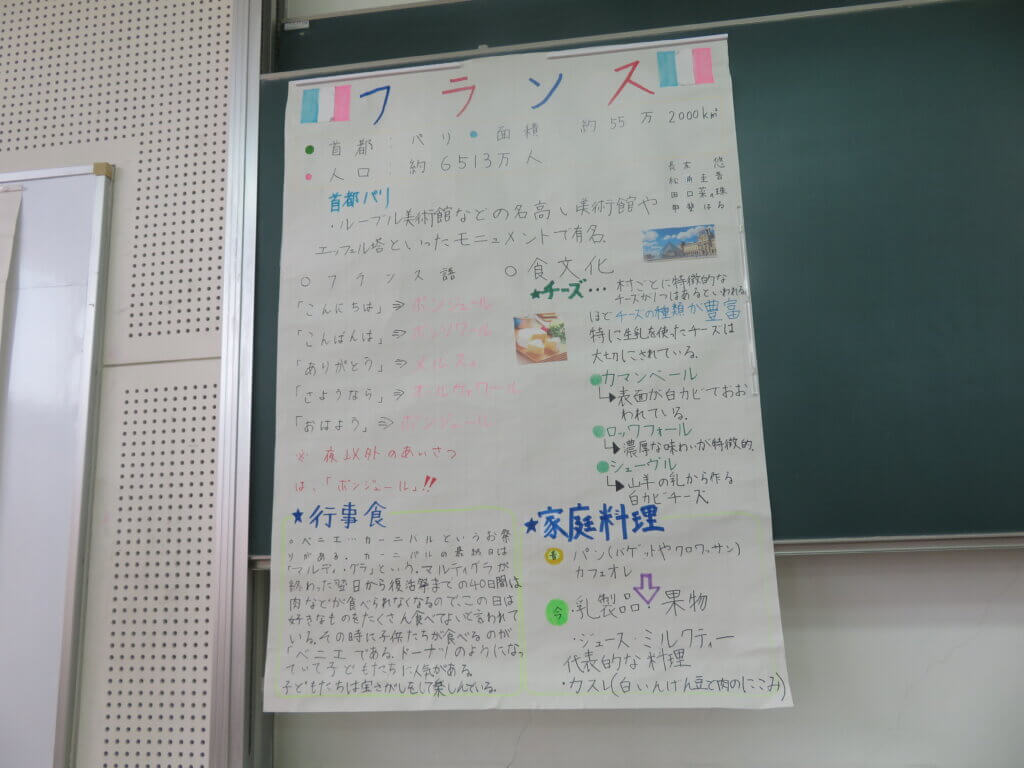 フランス
首都：パリ
面積　約55万2000km²
人口：約6513万人
首都パリ
・ルーブル美術館などの名高い美術館や
エッフェル塔といったモニュメントで有名。
○フランス語
「こんにちは」⇒ボンジュール
「こんばんは」⇒
「ありがとう」⇒メルスィ
「さようなら」⇒オルヴォワール
「おはよう」⇒ボンジュール
※ 夜以外のあいさつ
は、「ボンジュール」!!
○食文化
★チーズ…村ごとに特徴的な
チーズが1つはあるといわれる
ほどチーズの種類が豊富
特に生乳を使ったチーズは
大切にされている。
カマンベール
↳表面が白カビでおお
われている。
ロックフォール
↳濃厚な味わいが特徴的。
シェーヴル
↳山羊の乳から作る
白カビチーズ
★行事食
○ベニエ…カーニバルというお祭
りがある。カーニバルの最終日は
「マルディ・グラ」という。マルディグラが
終わった翌日から復活祭までの40日間は
肉などが食べられなくなるので、この日は
好きなものをたくさん食べてよいと言われて
いる。その時に子供たちが食べるのが
「ベニエ」である。ドーナツのようになっ
ていて子どもたちに人気がある。
子どもたちは宝さがしをして楽しんでいる。
★家庭料理
昔 パン(バゲットやクロワッサン)
カフェオレ
今 ・乳製品・果物
・ジュース・ミルクティー
代表的な料理
・カスレ(白いんげん豆と肉のにこみ)